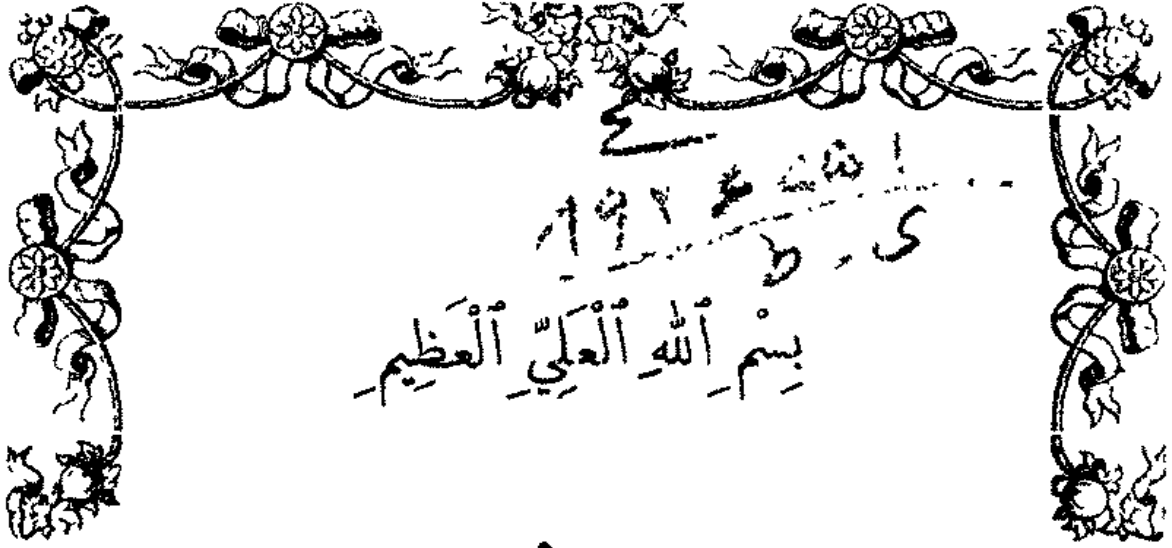 ع
ى - ط
بِسْمِ ٱللهِ ٱلْعَلِيِّ ٱلْعَظِيمِ